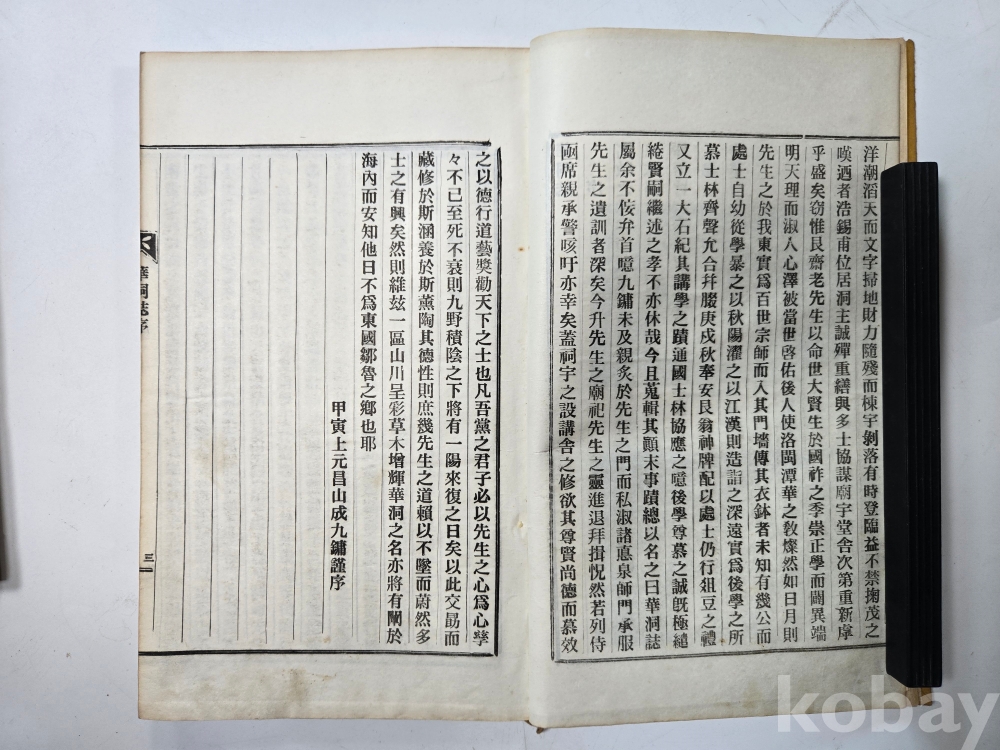 洋潮滔天而文字掃地財力隨殘而棟宇剝落有時登臨益不禁掬茂之
嘆迺者浩錫甫位居洞主誠殫重繕與多士協謀廟宇堂舍次第重新虖
乎盛矣窃惟艮齋老先生以命世大賢生於國祚之季崇正學而闢異端
明天理而淑人心澤被當世啓佑後人使洛閩潭華之敎燦然如日月則
先生之於我東實爲百世宗師而入其門墻傳其衣鉢者未知有幾公而
處士自幼從學暴之以秋陽濯之以江漢則造詣之深遠實爲後學之所
慕士林齊聲允合幷腏庚戌秋奉安艮翁神牌配以處士仍行俎豆之禮
又立一大石紀其講學之蹟通國士林協應之噫後學尊慕之誠旣極繾
綣賢嗣繼述之孝不亦休哉今且蒐輯其顚末事蹟總以名之曰華洞誌
屬余不侫弁首噫九鏞未及親炙於先生之門而私淑諸悳泉師門承服
先生之遺訓者深矣今升先生之廟祀先生之靈進退拜揖怳然若列侍
凾席親承警咳吁亦幸矣蓋祠宇之設講舍之修欲其尊賢尚德而慕效
之以德行道藝奬勸天下之士也凡吾黨之君子必以先生之心爲心孳
々不已至死不衰則九野積陰之下將有一陽來復之日矣以此交勗而
藏修於斯涵養於斯薰陶其德性則庶幾先生之道賴以不墜而蔚然多
士之有興矣然則維玆一區山川呈彩草木增輝華洞之名亦將有關於
海內而安知他日不爲東國鄒魯之鄕也耶
甲寅上元昌山成九鏞謹序
華洞誌序
三
kobay